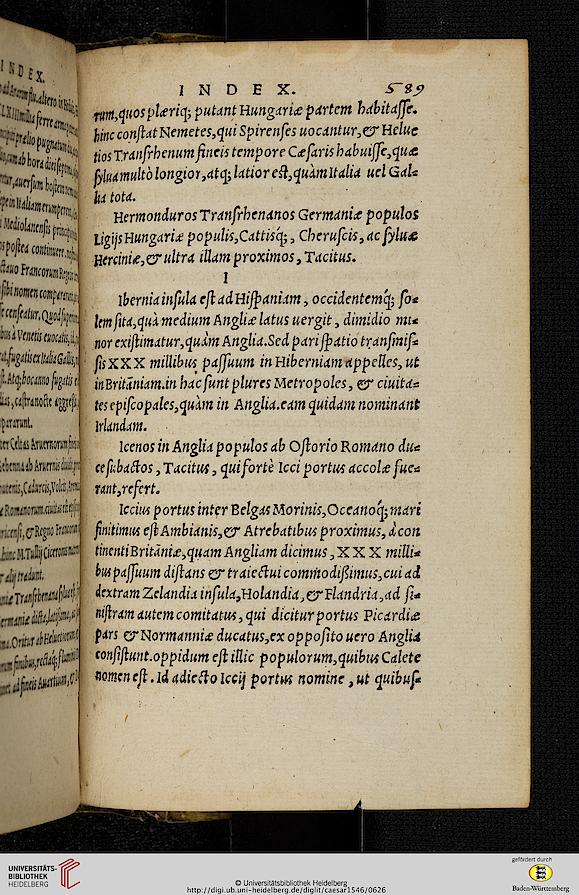 INDEX. 589
rum,quos plæriq; putant Hungariæ partem habitaſſe.
hinc conſtat Nemetes,qui Spirenſes uocantur,& Helue
tios Tranſrhenum fineis tempore Cæſaris habuiſſe,quæ
ſylua multò longior,atq; latior eſt,quàm Italia uel Gal=
lia tota.
Hermonduros Tranſrhenanos Germaniæ populos
Ligijs Hungariæ populis,Cattisq́;, Cheruſcis, ac ſyluæ
Herciniæ,& ultra illam proximos, Tacitus.
I
Ibernia inſula eſt ad Hiſpaniam, occidentemq́; ſo=
lem ſita,quà medium Angliæ latus uergit, dimidio mi=
nor exiſtimatur,quàm Anglia.Sed pari ſpatio tranſmiſ=
ſis XXX millibus paſſuum in Hiberniam appelles, ut
in Britãniam.in hac ſunt plures Metropoles, & ciuita=
tes epiſcopales,quàm in Anglia.eam quidam nominant
Irlandam.
Icenos in Anglia populos ab Oſtorio Romano du=
ce ſubactos, Tacitus, qui fortè Icci portus accolæ fue=
rant,refert.
Iccius portus inter Belgas Morinis,Oceanoq́; mari
finitimus eſt Ambianis,& Atrebatibus proximus, à con
tinenti Britãniæ,quam Angliam dicimus, XXX milli=
bus paſſuum diſtans & traiectui commodißimus,cui ad
dextram Zelandia inſula,Holandia,& Flandria,ad ſi=
niſtram autem comitatus, qui dicitur portus Picardiæ
pars & Normanniæ ducatus,ex oppoſito uero Anglia
conſiſtunt.oppidum eſt illic populorum,quibus Calete
nomen eſt. Id adiecto Iccij portus nomine, ut quibuſ=
UNIVERSITÄTS-
BIBLIOTHEK
HEIDELBERG
© Universitätsbibliothek Heidelberg
http://digi.ub.uni-heidelberg.de/diglit/caesar1546/0626
gefördert durch
Baden-Württemberg